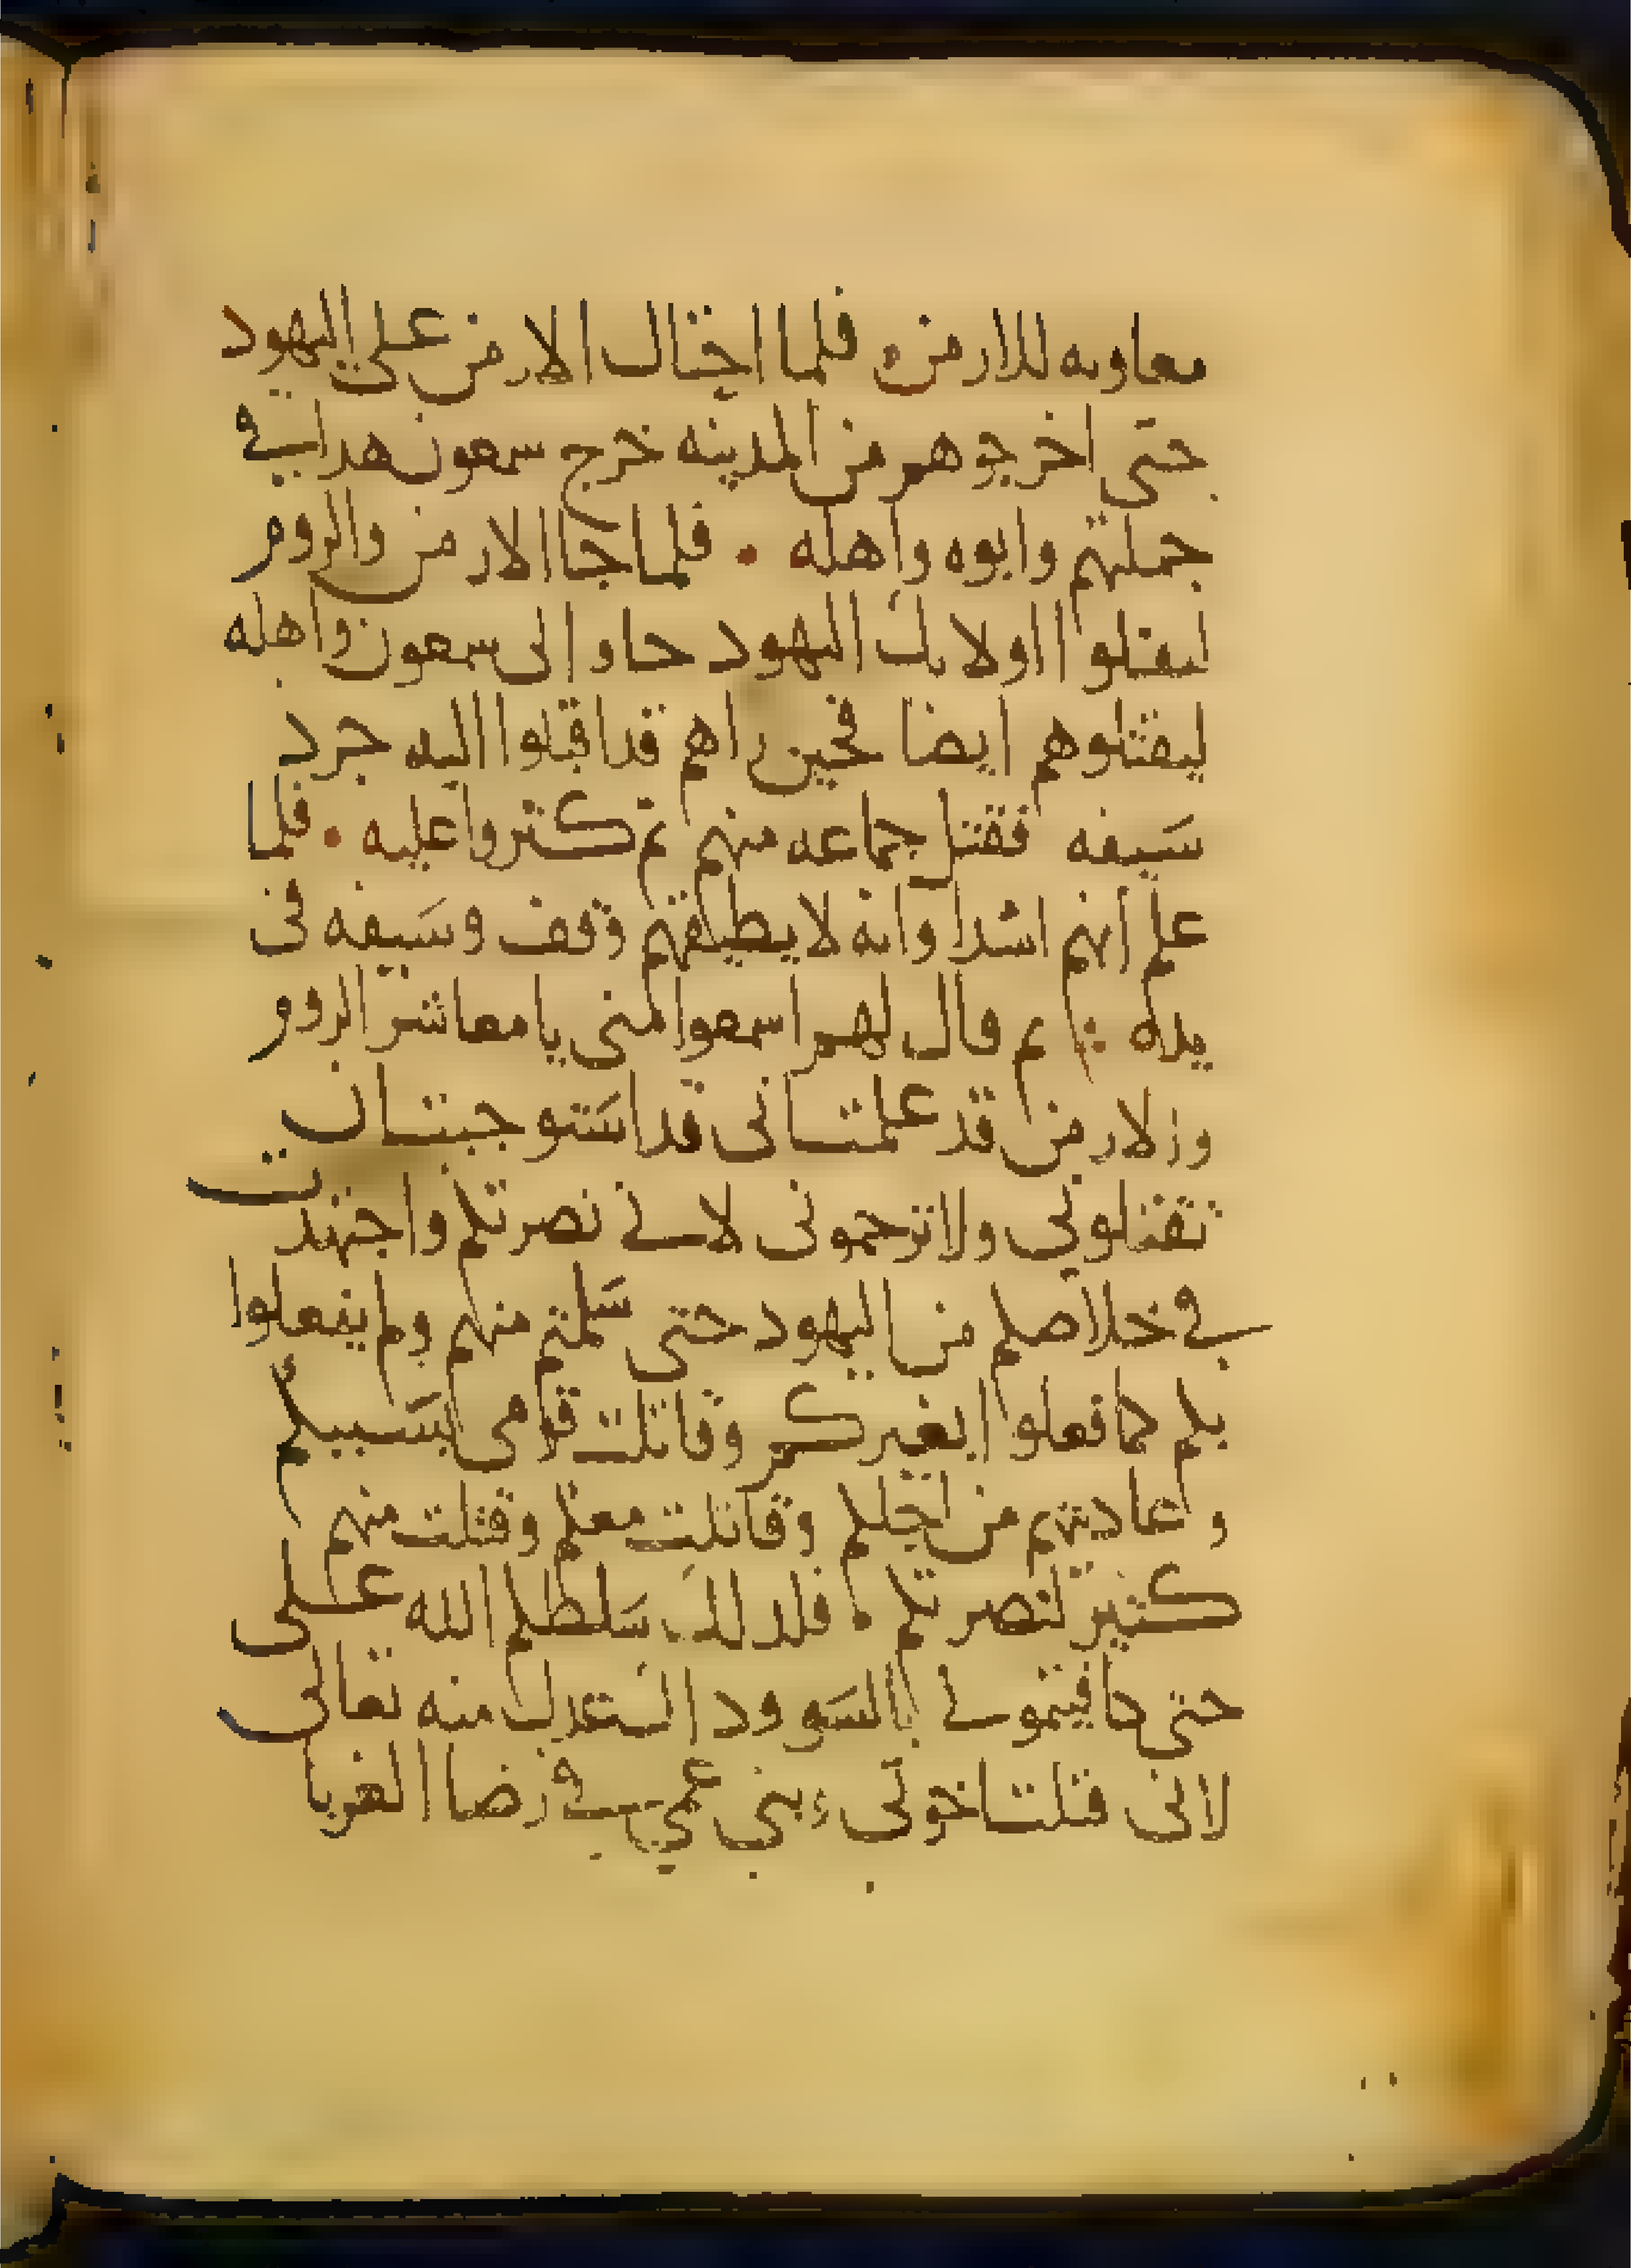 معاونه للارمن فلما اختال الارمن على اليهود
حتى اخرجوهم من المدينه خرج سمعون هدا في
جملتهم وابوه واهله · فلما جا الارمن والروم
ليقتلوا اولايك اليهود جاو الى سمعون واهله
ليقتلوهم ايضا فحين راهم قد اقبلوا اليه جرد
سيفه فقتل جماعه منهم تم كتروا عليه · فلما
علم انهم اشدا وانه لا يطيقهم وقف وسيفه في
يده : تم قال لهم اسمعوا مني يا معاشر الروم
والارمن قد علمت اني قد استوجبت ان
تقتلوني ولا ترحموني لاني نصرتكم واجتهدت
في خلاصكم من اليهود حتى سلمتم منهم ولم يفعلوا
بكم كما فعلوا بغيركم وقاتلت قومي بسببكم
وعاديتهم من اجلكم وقاتلت معكم وقتلت منهم
كثير لنصرتكم · فلدلك سلطكم الله على
حتى كافيتموني بالسوو منه تعالى
لاني قتلت اخوتي وبني عمي في رضا الغربا